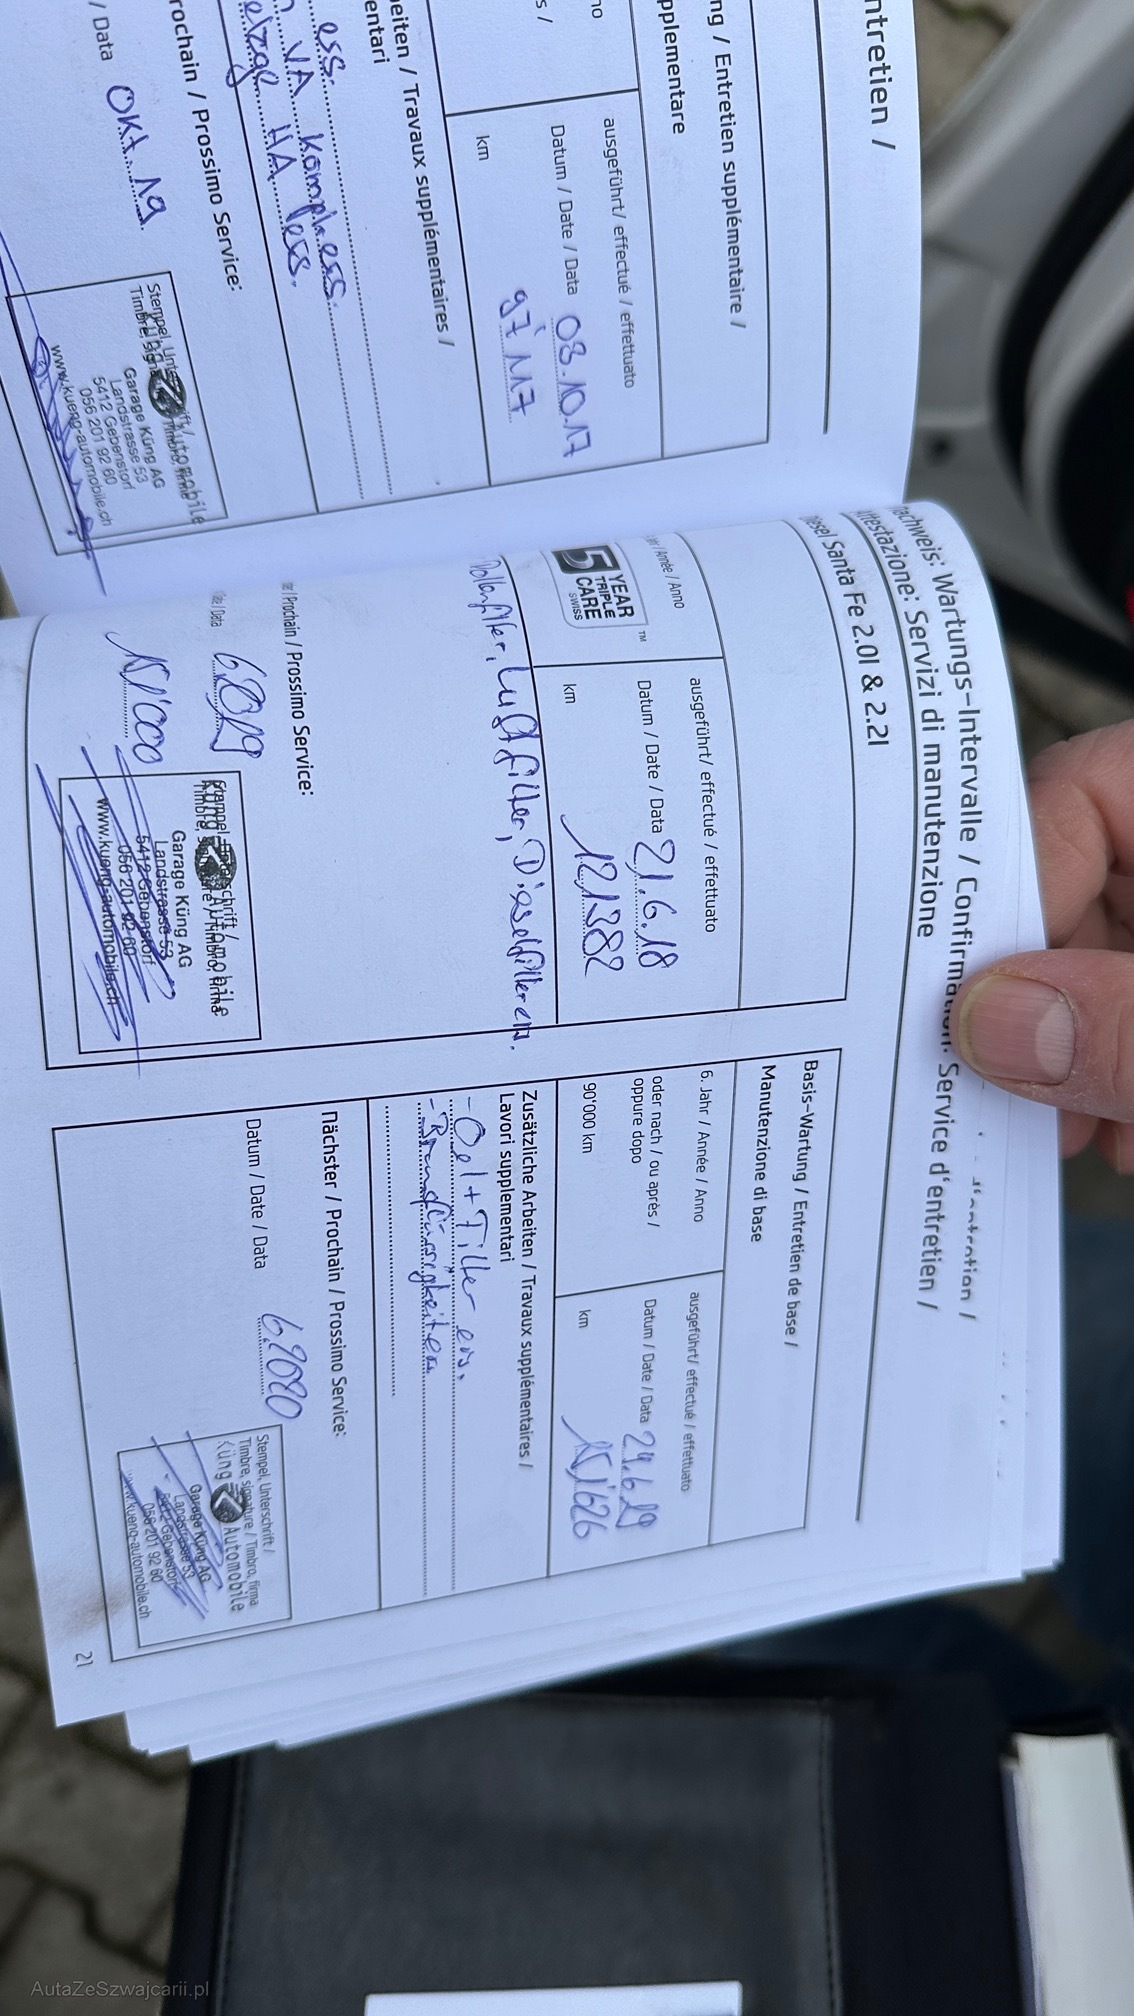 ntretien /
ng / Entretien supplémentaire /
pplementare
no
s /
ausgeführt/ effectué / effettuato
Datum / Date / Data 03.10.17
km 97'117
eiten / Travaux supplémentaires /
entari
ess.
VA kompl. ess.
HA ess.
rochain / Prossimo Service:
/ Data Okt. 19
Garage Küng AG
Landstrasse 53
5412 Gebenstorf
056 201 92 60
www.kueng-automobile.ch
achweis: Wartungs-Intervalle / Confirmation: Service d'entretien /
ttestazione: Servizi di manutenzione
iesel Santa Fe 2.0l & 2.2l
/ Année / Anno
5 YEAR
TRIPLE
CARE
SWISS
TM
ausgeführt/ effectué / effettuato
Datum / Date / Data 21.6.18
km 121382
Pollenfilter, Luftfilter, Dieselfilter ers.
/ Prochain / Prossimo Service:
/ Data 6.2019
151'000
Garage Küng AG
Landstrasse 53
5412 Gebenstorf
056 201 92 60
www.kueng-automobile.ch
Basis-Wartung / Entretien de base /
Manutenzione di base
6. Jahr / Année / Anno
oder nach / ou après /
oppure dopo
90'000 km
ausgeführt/ effectué / effettuato
Datum / Date / Data 24.6.19
km 151'626
Zusätzliche Arbeiten / Travaux supplémentaires /
Lavori supplementari
- Oel + Filter ers.
- Bremsflüssigkeit ers.
Nächster / Prochain / Prossimo Service:
Datum / Date / Data 6.2020
Stempel, Unterschrift /
Timbre, signature / Timbro, firma
Küng Automobile
Garage Küng AG
Landstrasse 53
5412 Gebenstorf
056 201 92 60
www.kueng-automobile.ch
21
AutaZeSzwajcarii.pl